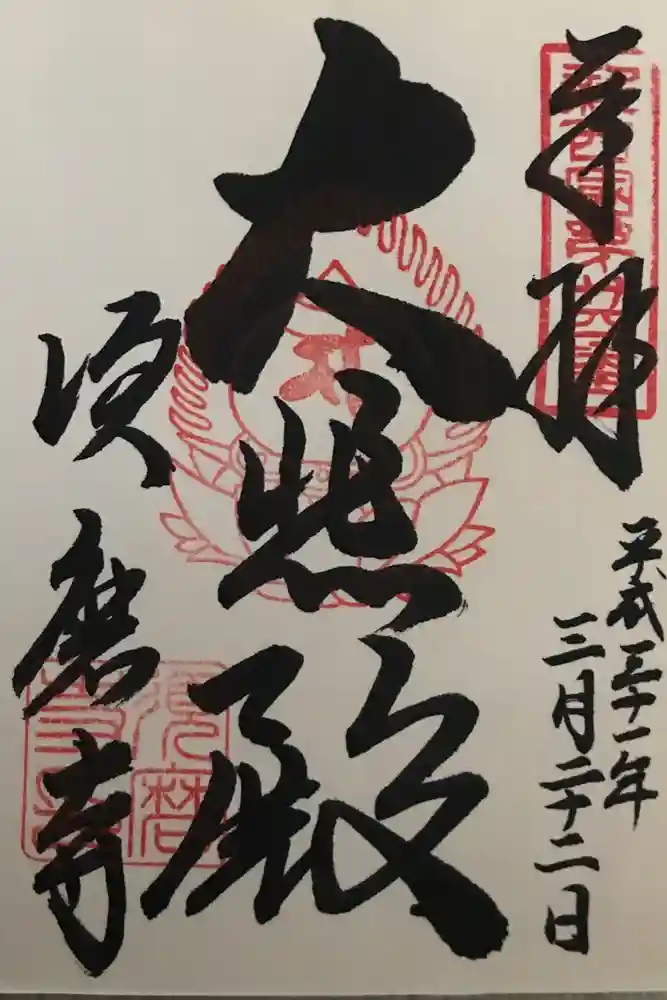 奉拝
平成三十一年
三月二十二日
大悲殿
須磨寺